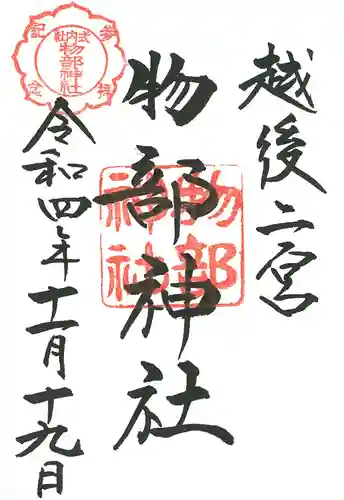 越後二宮
物部神社
令和四年十一月十九日
物部
神社
参拝記念
式内社
物部神社